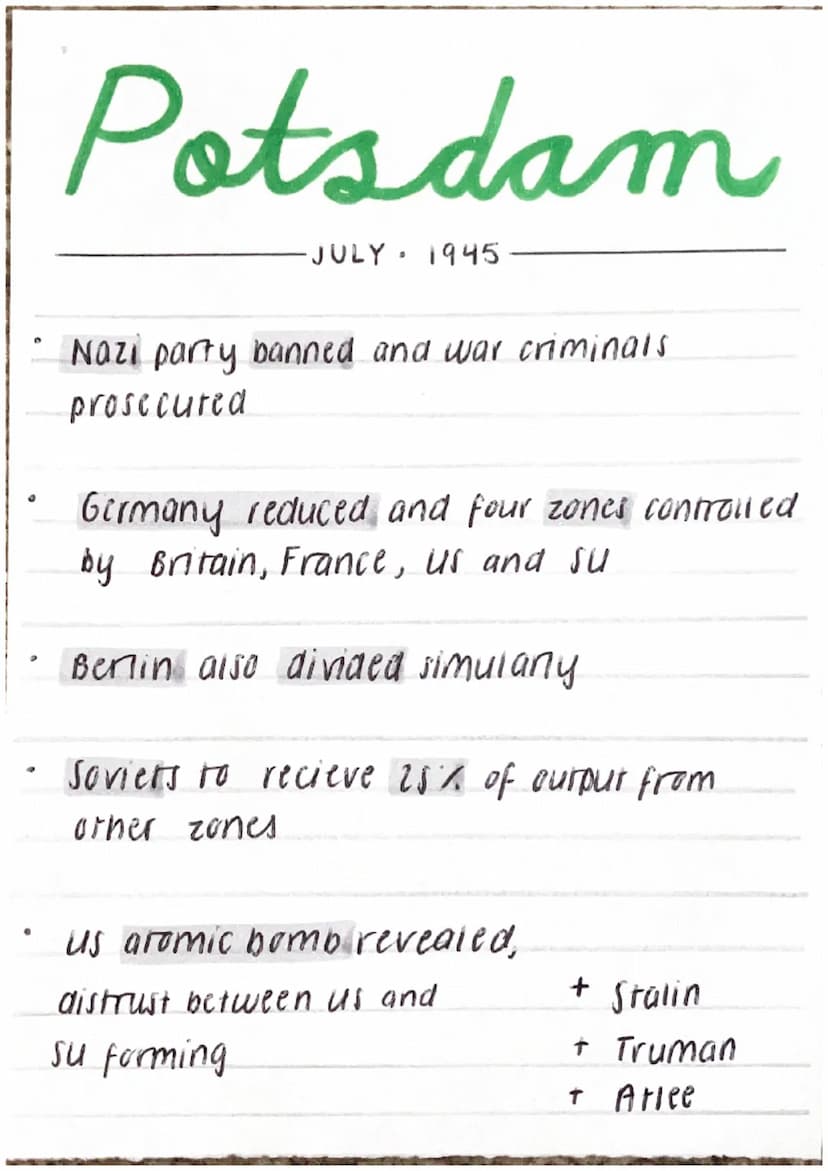 Potsdam
JULY · 1945
• Nazi party banned and war criminals
prosecuted
• Germany reduced and four zones controlled
by Britain, France, US and SU
• Berlin also divided simularly
• Soviets to recieve 25% of output from
other zones
• US atomic bomb revealed,
distrust between US and
SU forming
+ Stalin
+ Truman
+ Atlee